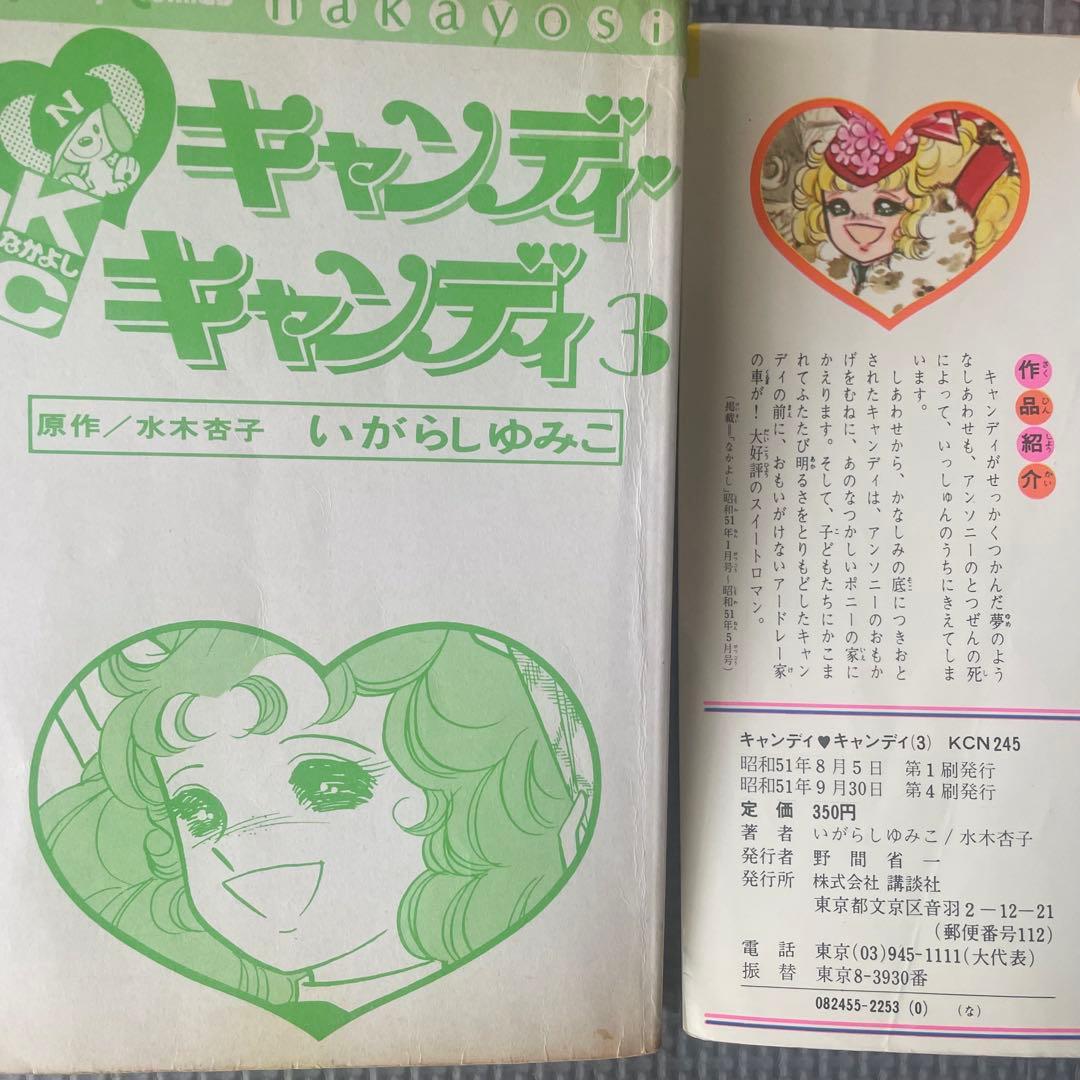 nakayosi
N
K
なかよし
C
キャンディ♥
キャンディ3
原作／水木杏子 いがらしゆみこ
作品紹介
キャンディがせっかくつかんだ夢のよう
なしあわせも、アンソニーのとつぜんの死
によって、いっしゅんのうちにきえてしま
います。
しあわせから、かなしみの底につきおと
されたキャンディは、アンソニーのおもか
げをむねに、あのなつかしいポニーの家に
かえります。そして、子どもたちにかこま
れてふたたび明るさをとりもどしたキャン
ディの前に、おもいがけないアードレー家
の車が！大好評のスイートロマン。
（掲載＝「なかよし」昭和51年1月号～昭和51年5月号）
キャンディ♥キャンディ(3) KCN245
昭和51年8月5日 第1刷発行
昭和51年9月30日 第4刷発行
定価 350円
著者 いがらしゆみこ/水木杏子
発行者 野間省一
発行所 株式会社 講談社
東京都文京区音羽2－12－21
（郵便番号112）
電話 東京(03)945-1111(大代表)
振替 東京8-3930番
082455-2253 (0) (な)